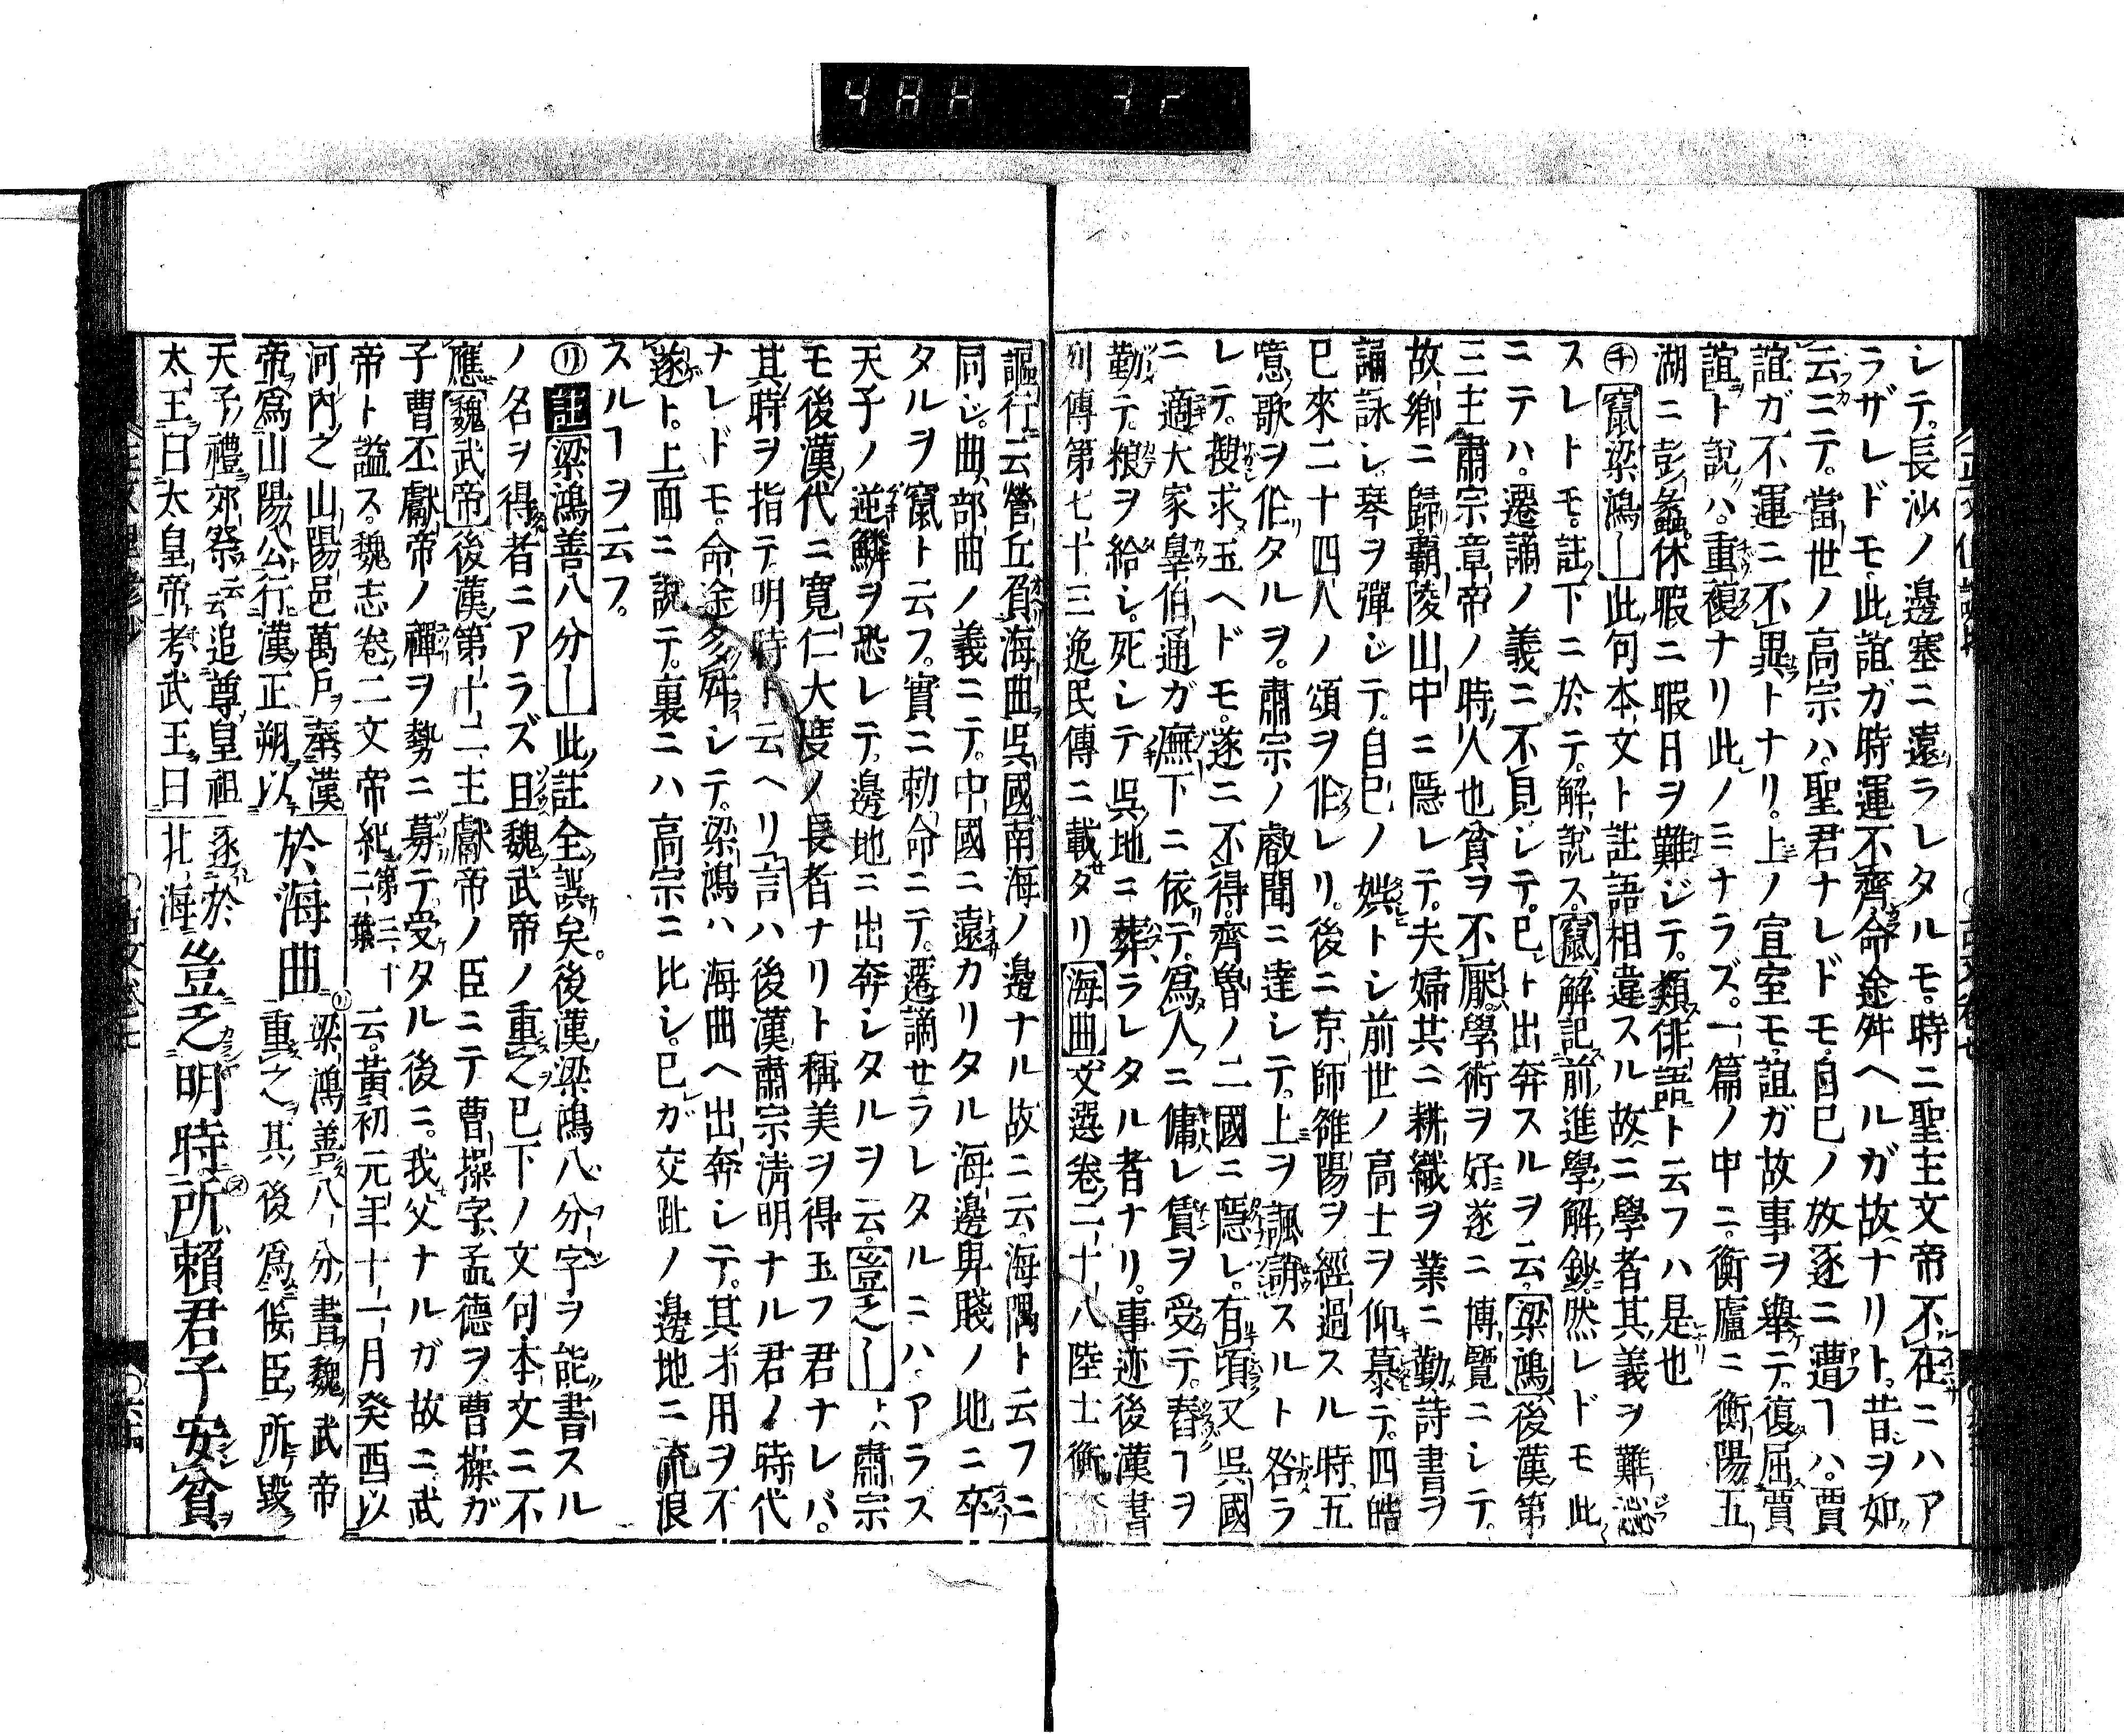 シテ。長沙ノ邊塞ニ遠ラレタルモ。時ニ聖主文帝不在ニハア
ラザレドモ。此誼ガ時運不齊命途舛ヘルガ故ナリト。昔ヲ如
云ニテ。當世ノ高宗ハ。聖君ナレドモ。自己ノ放逐ニ遭ヿハ。賈
誼ガ不運ニ不異トナリ。上ノ宣室モ。誼ガ故事ヲ舉テ。復屈賈
誼ト説ハ。重複ナリ此ノミナラズ。一篇ノ中ニ。衡廬ニ衡陽五
湖ニ彭蠡休暇ニ暇日ヲ難ジテ。類俳語ト云フハ是也
㋠竄梁鴻―此句本文ト註語相違スル故ニ學者其義ヲ難
スレトモ。註下ニ於テ。解説ス。竄解記前進學解鈔。然レドモ此
ニテハ。遷謫ノ義ニ不見シテ。已ト出奔スルヲ云。梁鴻後漢第
三主肅宗章帝ノ時人也貧ヲ不厭。學術ヲ好遂ニ博覽ニシテ。
故鄉ニ歸霸陵山中ニ隱レテ。夫婦共ニ耕織ヲ業ニ勤詩書ヲ
誦詠シ。琴ヲ彈ジテ。自己ノ娯トシ前世ノ高士ヲ仰慕テ。四皓
已來二十四人ノ頌ヲ作レリ。後ニ京師雒陽ヲ經過スル時五
噫歌ヲ作タルヲ。肅宗ノ叡聞ニ達シテ。上ヲ諷謗スルト咎ラ
レテ。捜求玉ヘドモ。遂ニ不得。齊魯ノ二國ニ隱レ。有頃又呉國
ニ適大家皐伯通ガ廡下ニ依テ。爲人ニ傭レ賃ヲ受テ。舂ヿヲ
勤テ。粮ヲ給シ。死シテ呉地ニ葬ラレタル者ナリ。事迹後漢書
列傳第七十三逸民傳ニ載タリ海曲文選卷二十八陸士衡
謳行云營丘負海曲呉國南海ノ邊ナル故ニ云。海隅ト云フニ
同シ。曲部曲ノ義ニテ。中國ニ遠カリタル海邊卑賤ノ地ニ卒
タルヲ竄ト云フ。實ニ勅命ニテ。遷謫セラレタルニハ。アラズ
天子ノ逆鱗ヲ恐レテ。邊地ニ出奔シタルヲ云。豈乏―上肅宗
モ後漢代ニ寛仁大度ノ長者ナリト稱美ヲ得玉フ君ナレバ。
其時ヲ指テ。明時ト云ヘリ言ハ後漢肅宗清明ナル君ノ時代
ナレドモ。命途多舛シテ。梁鴻ハ海曲ヘ出奔シテ。其才用ヲ不
遂ト。上面ニ説テ。裏ニハ高宗ニ比シ。已ガ交趾ノ邊地ニ流浪
スルヿヲ云フ。
㋷註梁鴻善八分―此註全誤矣。後漢梁鴻八分字ヲ能書スル
ノ名ヲ得者ニアラズ且魏武帝ノ重之已下ノ文句本文ニ不
應魏武帝後漢第十二主獻帝ノ臣ニテ曹操字孟德ヲ曹操ガ
子曹丕獻帝ノ禪ヲ勢ニ募テ。受タル後ニ。我父ナルガ故ニ武
帝ト謚ス。魏志卷二文帝紀第二十二葉云。黃初元年十一月癸酉以
河內之山陽邑萬戸奉漢
帝爲山陽公行漢正朔以
天子禮郊祭云追尊皇祖
太王曰太皇帝考武王曰
於海曲㋷梁鴻善八分書魏武帝
重之其後爲佞臣所毀
逐於
北海豈乏明時㋦所賴君子安貧